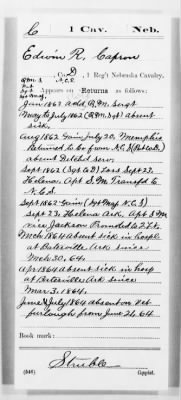 C 1 Cav. Neb.
Edwin R. Capron
Co. D, 1 Reg't Nebraska Cavalry.
Appears on Returns as follows:
Jan 1862 add. Q.M. Sergt
May to July 1862 (Q.M. Sgt) absent
sick.
Aug 1862 Gain July 20. Memphis
Returned to Co from N.C.S.
absent Detchd serv.
Sept 1862 (Sgt Co D) Loss Sept 23.
Helena. Apt S.M. Transfd to
N.C.S.
Sept 1862 Gain (Sgt Maj N.C.S)
Sept 23. Helena Ark. Apt S.M
vice Jackson Promoted to 2 Lt.
Mch 1864 absent sick in hospl
at Batesville Ark since
Mch 30, 64.
Apr 1864 absent sick in hosp
at Batesville Ark since
Mar 3, 1864.
June & July 1864 absent on Vet
furlough from June 26, 64.
Book mark:
Stribble
(546) Copyist.